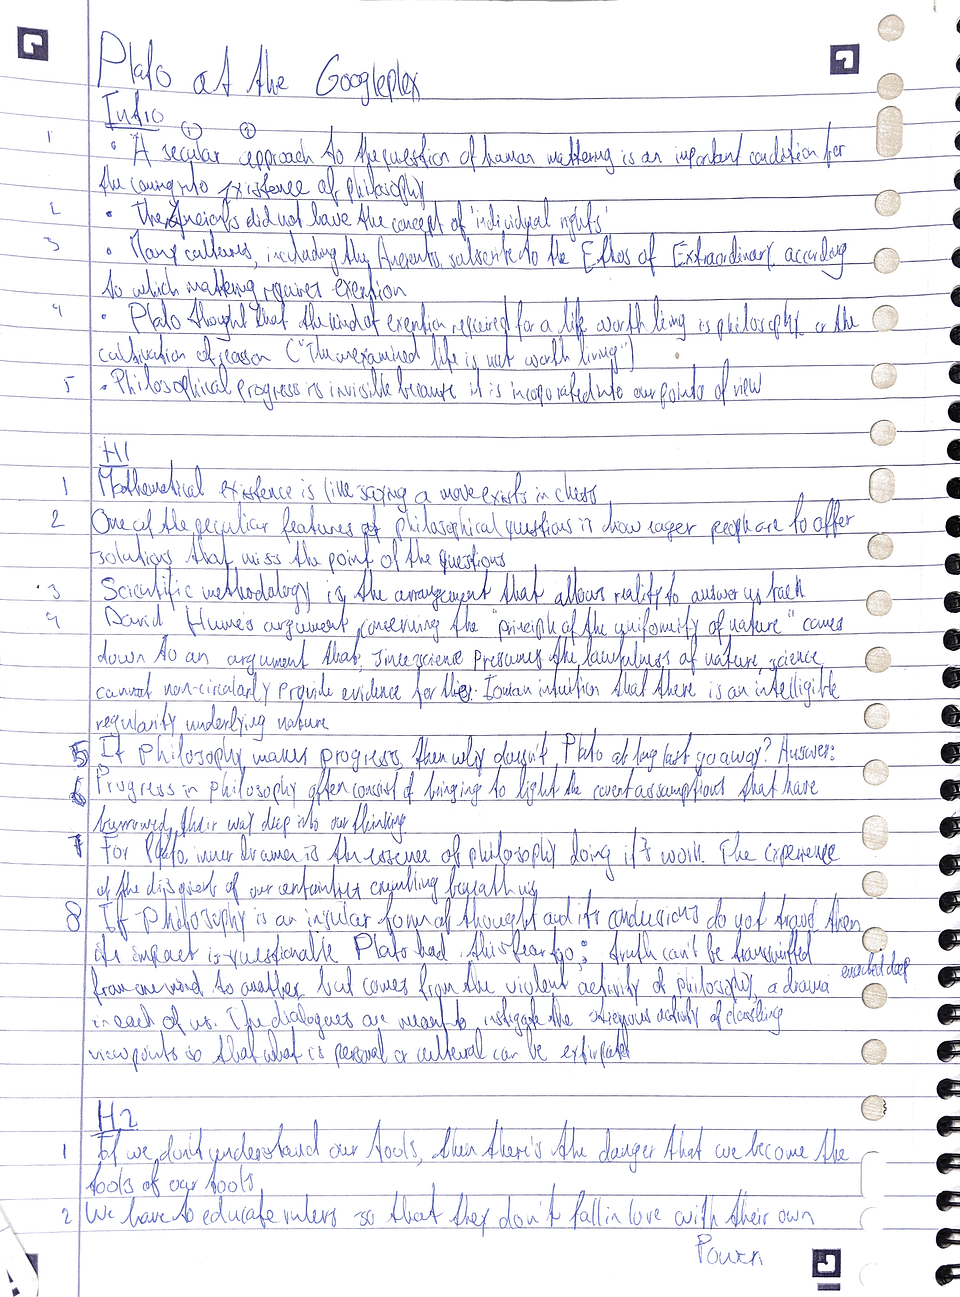 Plato at the Googleplex
Intro
① ②
1 • A secular approach to the question of human mattering is an important condition for
the coming into existence of philosophy
2 • The Ancients did not have the concept of 'individual rights'
3 • Many cultures, including the Ancients, subscribe to the Ethos of Extraordinary, according
to which mattering requires exertion
4 • Plato thought that the kind of exertion required for a life worth living is philosophy, or the
cultivation of reason ("The unexamined life is not worth living")
5 • Philosophical progress is invisible because it is incorporated into our points of view
H1
1 Mathematical existence is like saying a move exists in chess
2 One of the peculiar features of philosophical questions is how eager people are to offer
solutions that miss the point of the questions
3 Scientific methodology is the arrangement that allows reality to answer us back
4 David Hume's argument concerning the "principle of the uniformity of nature" comes
down to an argument that, since science presumes the lawfulness of nature, science
cannot non-circularly provide evidence for the Ionian intuition that there is an intelligible
regularity underlying nature
5 If philosophy makes progress, then why doesn't Plato at long last go away? Answer:
6 Progress in philosophy often consist of bringing to light the covert assumptions that have
burrowed their way deep into our thinking
7 For Plato, inner drama is the essence of philosophy doing it's work. The experience
of the disquiet of our certainties crumbling beneath us
8 If philosophy is an insular form of thought and its conclusions do not travel then
its impact is questionable Plato had this fear too; truth can't be transmitted
from one mind to another, but comes from the violent activity of philosophy, a drama enacted deep
in each of us. The dialogues are meant to instigate the strenuous activity of clashing
viewpoints so that what is personal or cultural can be extirpated
H2
1 If we don't understand our tools, then there's the danger that we become the
tools of our tools
2 We have to educate rulers so that they don't fall in love with their own
Power